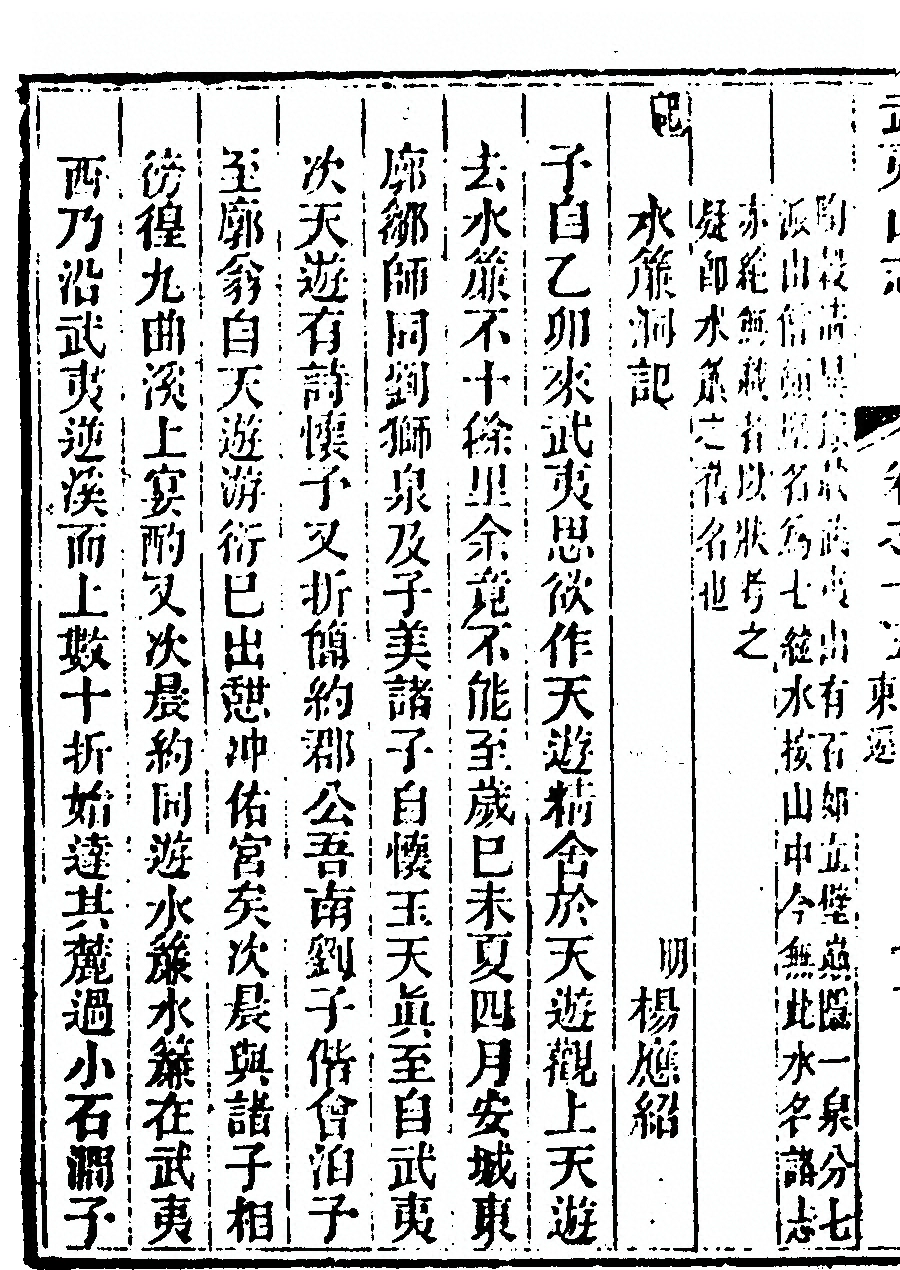 武夷山志 卷之十 東遊
陶穀清異錄載武夷山有石如立壁巔隱一泉分七
派山僧頗 名為七縫水按山中今無此水名諸志
亦絶無載者以狀考之
疑即水簾之舊名也
記
水簾洞記 明楊應紹
予自乙卯來武夷思欲作天遊精舍於天遊觀上天遊
去水簾不十餘里余竟不能至歲巳未夏四月安城東
廓鄒師同劉獅泉及子美諸子自懷玉天眞至自武夷
次天遊有詩懷予又折簡約郡公吾南劉子偕曾泊子
至廓翁自天遊游衍巳出憇冲佑宮矣次晨與諸子相
徬徨九曲溪上宴酌又次晨約同遊水簾水簾在武夷
西乃沿武夷逆溪而上數十折始達其麓過小石澗予